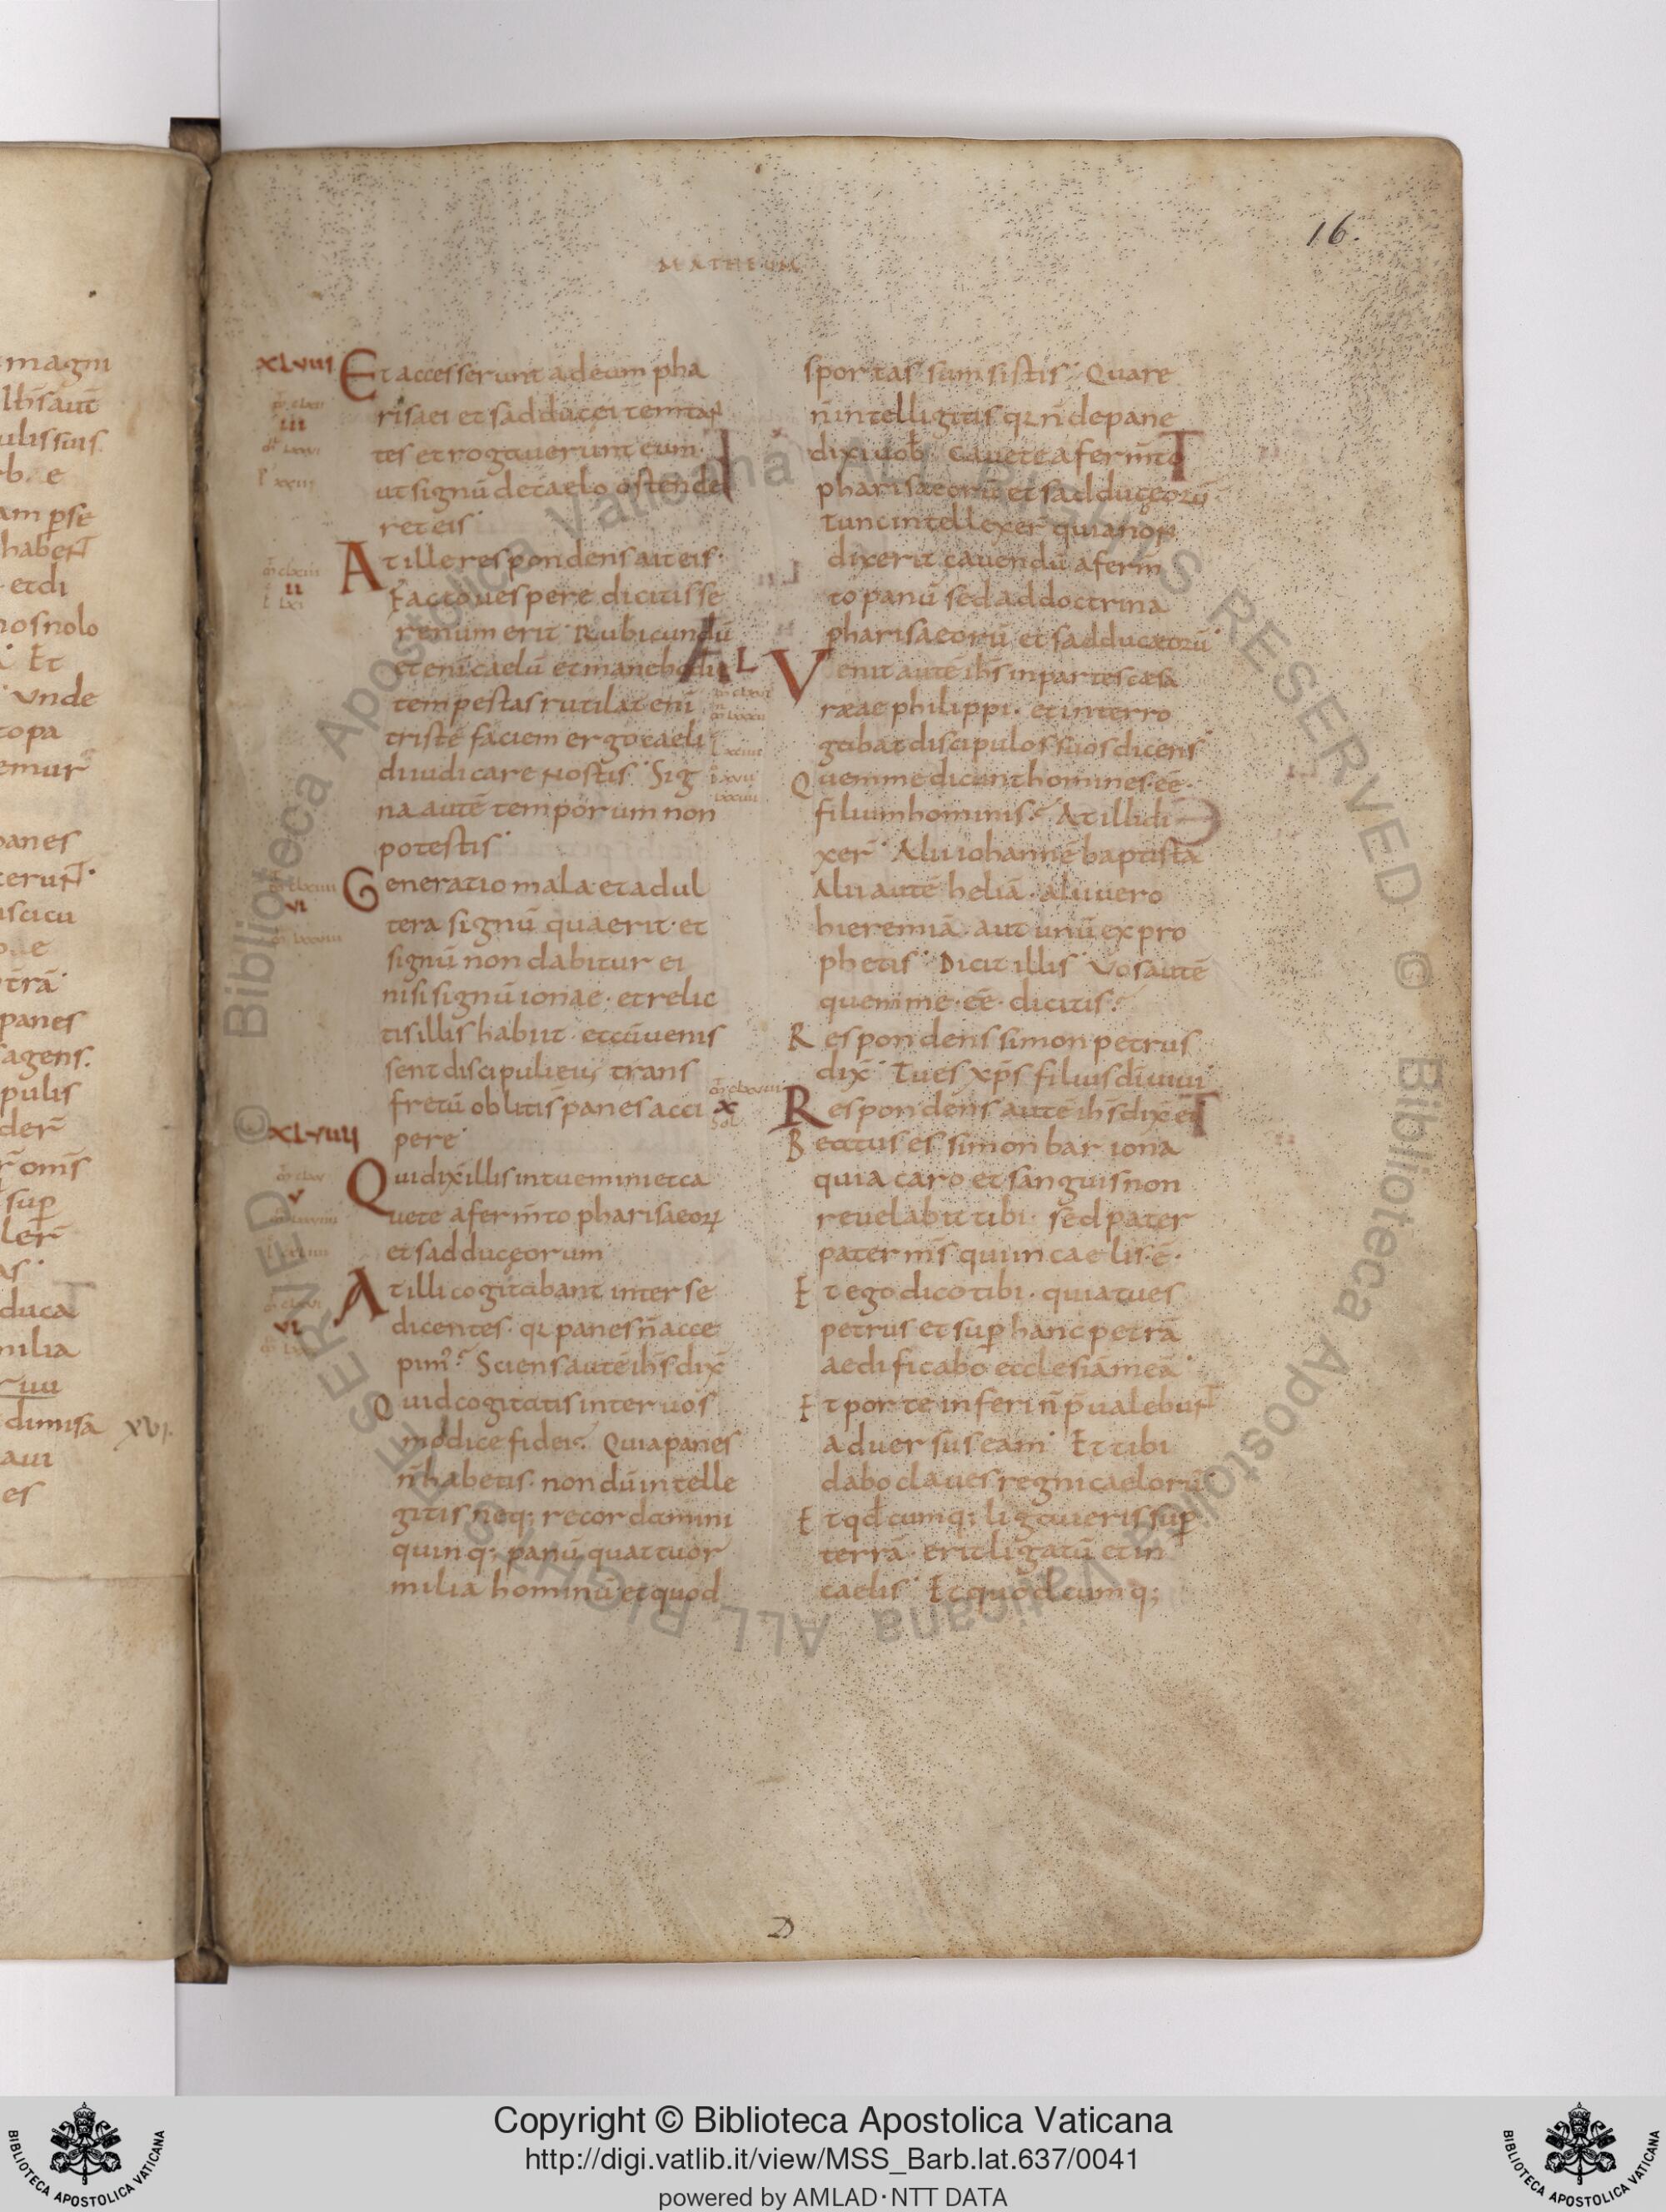 16.
MATHEUM
XLVIII Et accesserunt ad eum pha
risaei et sadducei temtan
tes et rogaverunt eum·
ut signū de caelo ostende
ret eis·
At ille respondens ait eis·
Facto vespere dicitis se
renum erit· Rubicundū
est enī caelū et mane hodie
tempestas rutilat enī
triste faciem ergo caeli
diiudicare nostis· Sig
na autē temporum non
potestis·
Generatio mala et adul
tera signū quaerit· et
signū non dabitur ei
nisi signū ionae· et relic
tis illis habiit· et cū venis
sent discipuli eius trans
fretū oblitis panes acci
XLVIIII pere·
Qui dix̄ illis intuemini et ca
vete a ferm̄to pharisaeoꝝ
et sadducęorum
At illi cogitabant inter se
dicentes· qꝛ panes n̄ acce
pimꝰ? Sciens autē ih̄s dix̄
Quid cogitatis inter vos
modice fidei? Quia panes
n̄ habetis· non dū intelle
gitis neq; recordamini
quinq; panū quattuor
milia hominū et quod
sportas sumsistis? Quare
n̄ intelligitis qꝛ n̄ de pane
dixi vob̄· Cavete a ferm̄to
pharisaeorū et sadducęorū
Tunc intellexer̄ quia non
dixerit cavendū a ferm̄
to panū sed ad doctrina
pharisaeorū et sadducæorū·
L Venit autē ih̄s in partes cæsa
ræae philippi· et interro
gabat discipulos suos dicens·
Quem me dicunt homines· eē·
filium hominis? At illi di
xer̄· Alii iohannē baptista
Alii autē heliā· alii vero
hieremiā· aut unū ex pro
phetis· Dicit illis· Vos autē
quem me· eē· dicitis?
Respondens simon petrus
dix̄· Tu es xp̄s filius dī vivi
Respondens autē ih̄s dix̄ ei
Beatus es simon bar iona
quia caro et sanguis non
revelabit tibi· sed pater
pater m̄s qui in caelis· ē·
Et ego dico tibi· quia tu es
petrus et sup̄ hanc petrā
aedificabo ecclesiā meā·
Et porte inferi n̄ p̄valebunt
adversus eam· Et tibi
dabo claves regni caelorū
Et qd̄ cumq; ligaveris sup̄
terrā· erit ligatū et in
caelis· Et quod cumq;
D
Copyright © Biblioteca Apostolica Vaticana
http://digi.vatlib.it/view/MSS_Barb.lat.637/0041
powered by AMLAD·NTT DATA